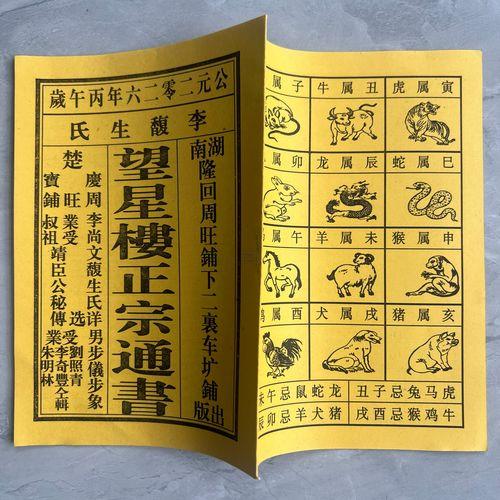 公元二零二六年丙午歲
李馥生氏
湖南隆回周旺鋪下二裏车圹鋪出版
望星樓正宗通書
慶周李尚文馥生氏详男步儀步象
楚旺業受选受劉照青李奇豐仝輯
寶鋪叔祖靖臣公秘傳業朱明林
寅属虎
丑属牛
子属
巳属蛇
辰属龙
卯属
申属猴
未属羊
午属
亥属猪
戌属犬
酉属鸡
丑子忌兔马虎
戌酉忌猴鸡牛
未午忌鼠蛇龙
辰卯忌羊犬猪